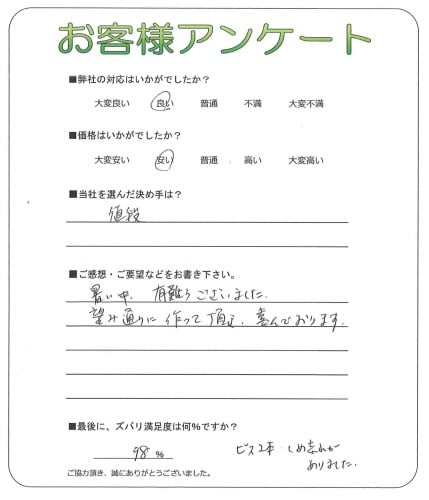 お客様アンケート
■弊社の対応はいかがでしたか？
大変良い 良い 普通 不満 大変不満
■価格はいかがでしたか？
大変安い 安い 普通 高い 大変高い
■当社を選んだ決め手は？
値段
■ご感想・ご要望などをお書き下さい。
暑い中、有難うございました。
望み通りに作って頂き、喜んでおります。
■最後に、ズバリ満足度は何％ですか？
98 %
ビス2本・しめ忘れが
ありました。
ご協力頂き、誠にありがとうございました。